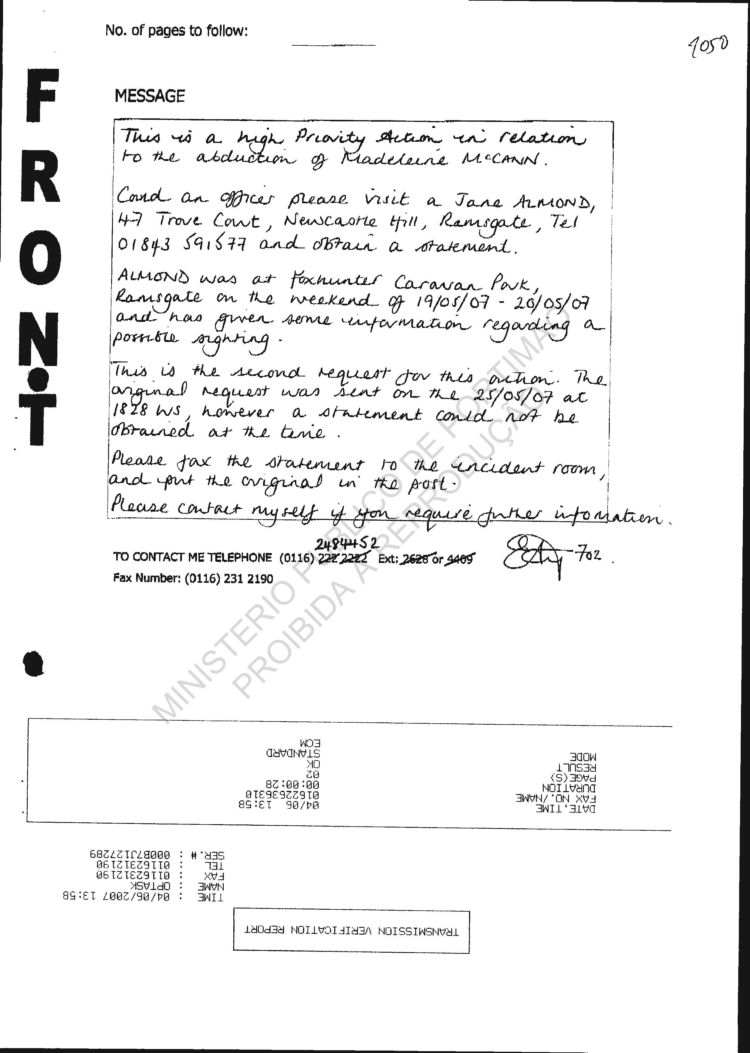 No. of pages to follow:
4050
FRONT
MESSAGE
This is a high Priority Action in relation
to the abduction of Madeleine McCANN.
Could an officer please visit a Jane ALMOND,
47 Trove Court, Newcastle Hill, Ramsgate, Tel
01843 591577 and obtain a statement.
ALMOND was at Foxhunter Caravan Park,
Ramsgate on the weekend of 19/05/07 - 20/05/07
and has given some information regarding a
possible sighting.
This is the second request for this action. The
original request was sent on the 25/05/07 at
1828 hrs, however a statement could not be
obtained at the time.
Please fax the statement to the incident room,
and put the original in the post.
Please contact myself if you require further information.
2484452
TO CONTACT ME TELEPHONE (0116) 222 2222 Ext: 2626 or 4409
702.
Fax Number: (0116) 231 2190
MINISTERIO PUBLICO DE PORTIMAO
PROIBIDA A REPRODUÇÃO
TRANSMISSION VERIFICATION REPORT
TIME : 04/06/2007 13:58
NAME : OPTASK
FAX : 01162312190
TEL : 01162312190
SER.# : 000B7J127289
DATE,TIME 04/06 13:58
FAX NO./NAME 01622636310
DURATION 00:00:28
PAGE(S) 02
RESULT OK
MODE STANDARD
ECM